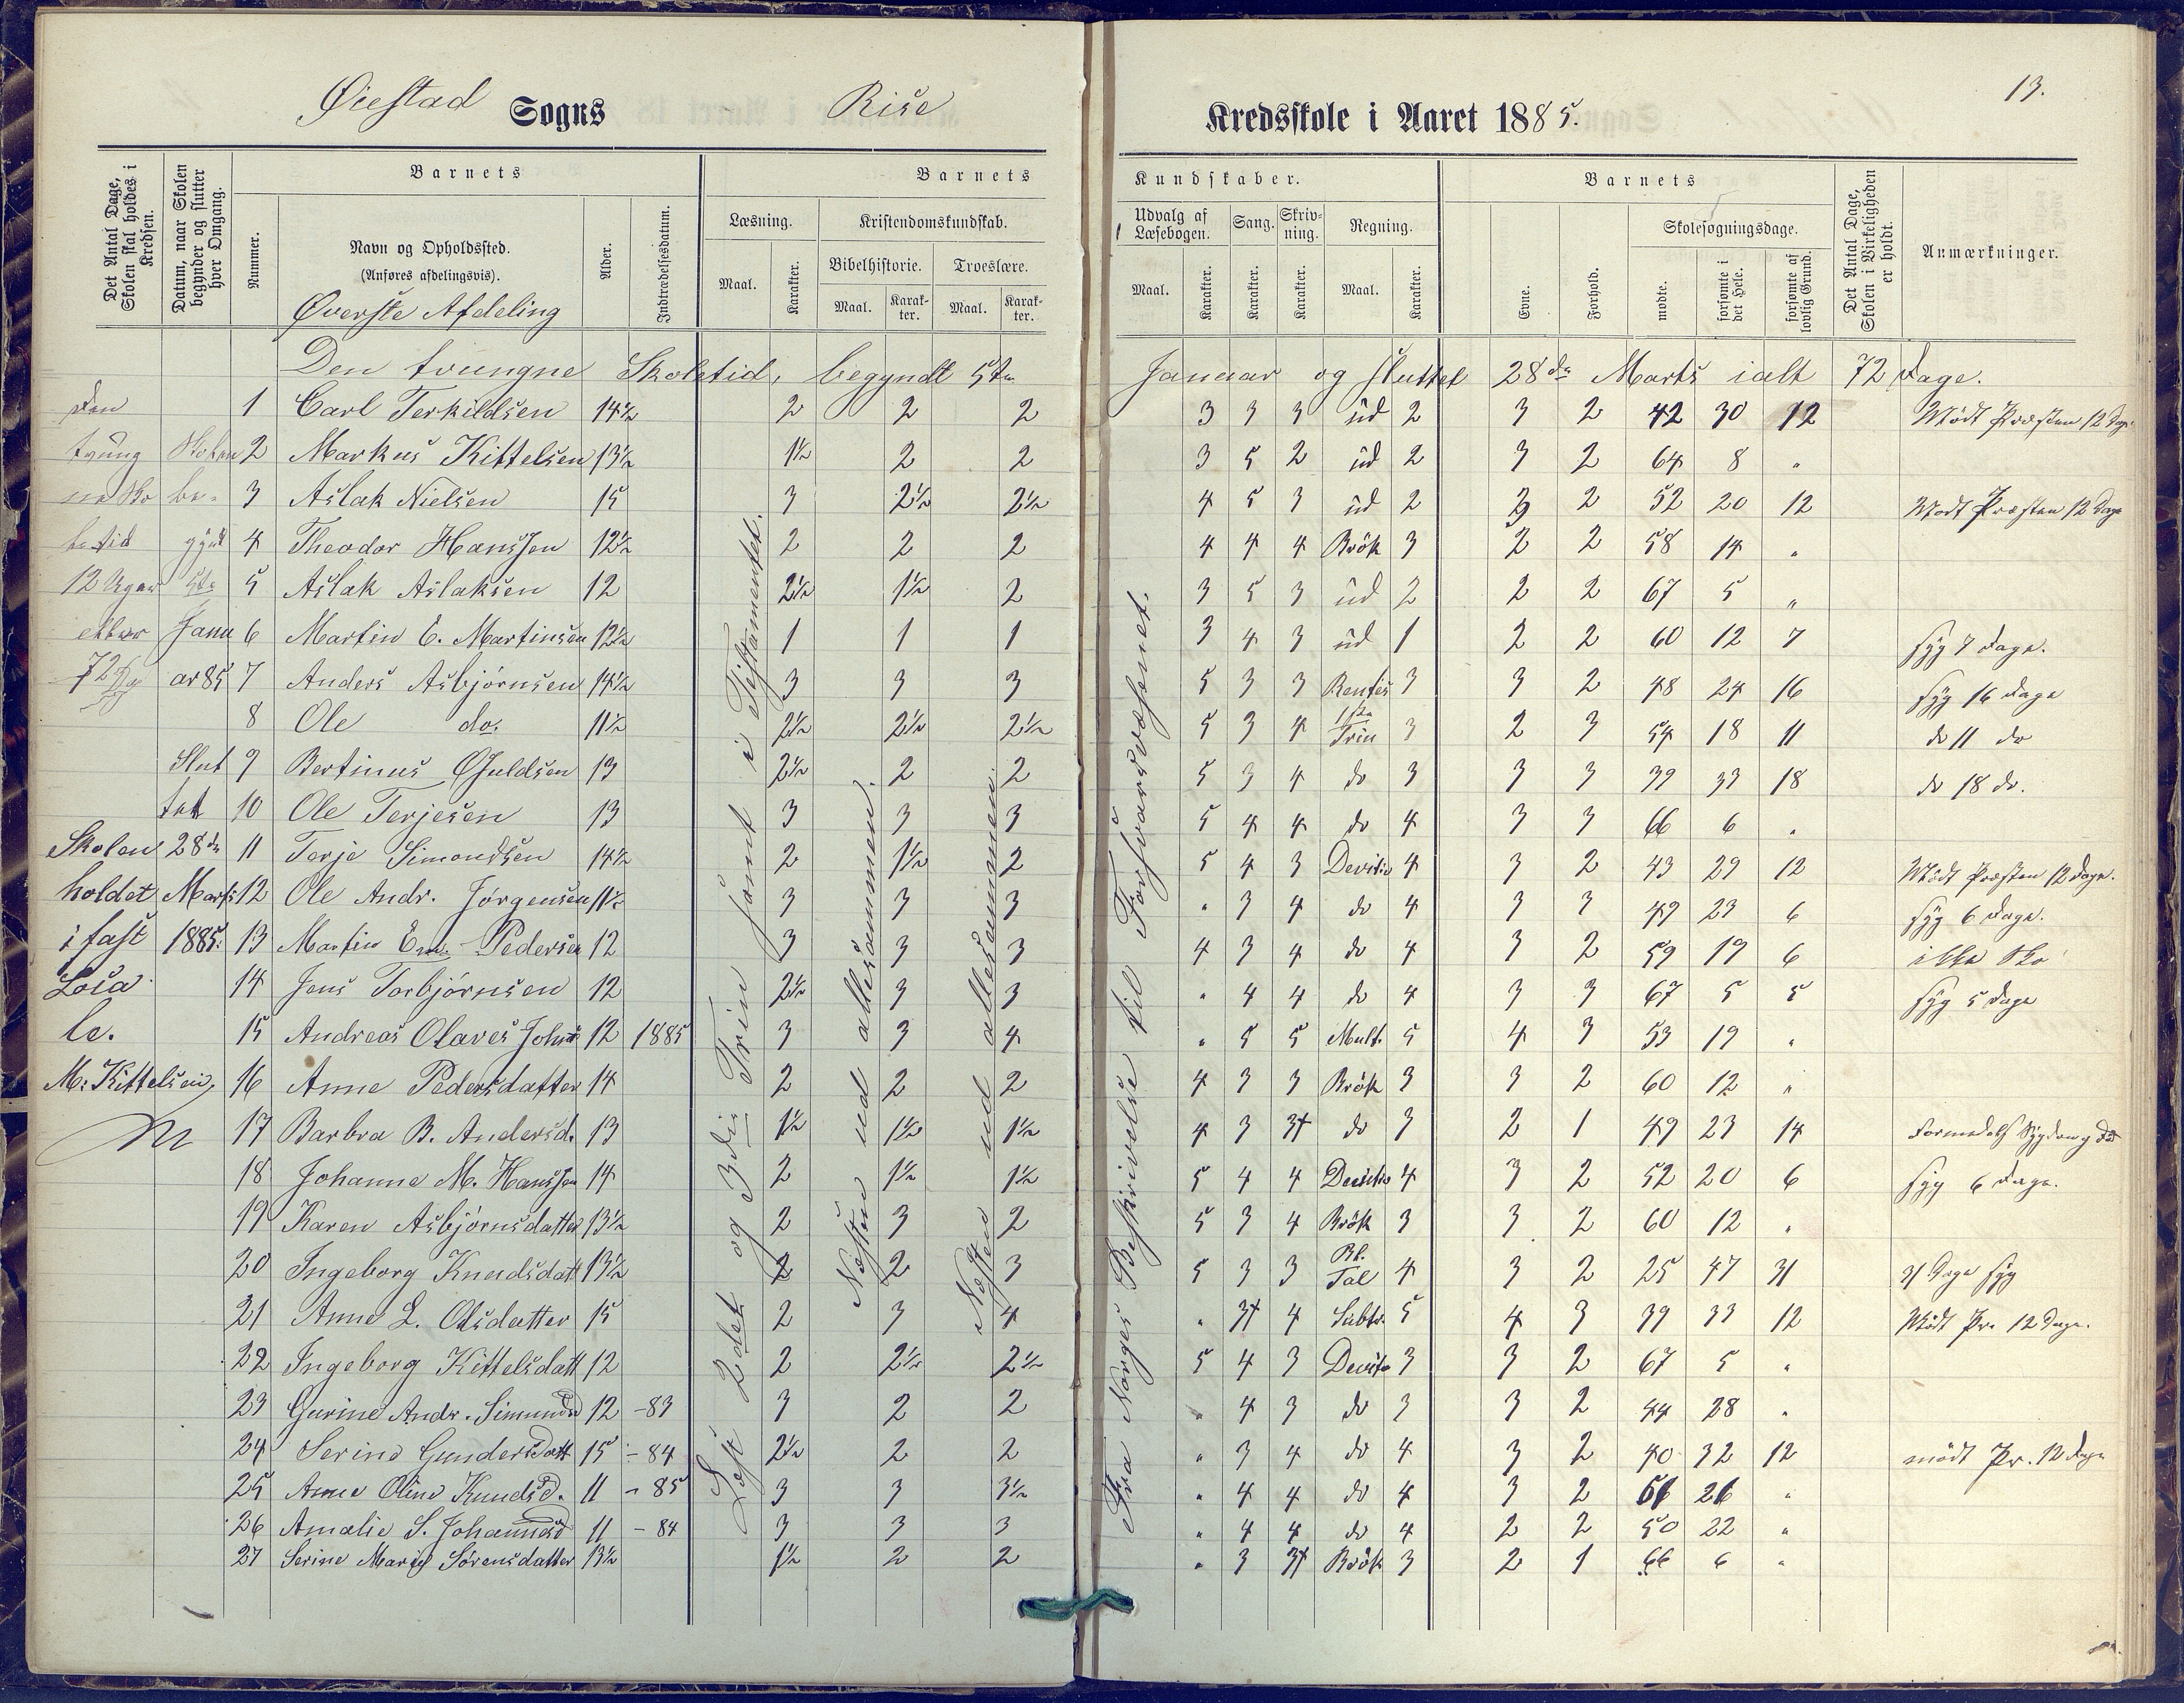 13.
Øiestad Sogns Rise Kredsskole i Aaret 1885.
Det Antal Dage, Skolen skal holdes i Kredsen.
Datum, naar Skolen begynder og slutter hver Omgang.
Barnets
Nummer.
Navn og Opholdssted.
(Anføres afdelingsvis).
Øverste Afdeling
Alder.
Indtrædelsesdatum.
Barnets Kundskaber.
Læsning.
Maal.
Karakter.
Kristendomskundskab.
Bibelhistorie.
Maal.
Karakter.
Troeslære.
Maal.
Karakter.
Udvalg af Læsebogen.
Maal.
Karakter.
Sang.
Karakter.
Skrivning.
Karakter.
Regning.
Maal.
Karakter.
Barnets
Evne.
Forhold.
Skolesøgningsdage.
mødte.
forsømte i det Hele.
forsømte af lovlig Grund.
Det Antal Dage, Skolen i Virkeligheden er holdt.
Anmærkninger.
Den tvungne Skoletid, begyndt 5te Januar og sluttet 28de Marts ialt 72 Dage.
1 Carl Terkildsen 14½ 2 2 2 3 3 3 ud 2 3 2 42 30 12 Mødt Præsten 12 Dage
2 Markus Kittelsen 13½ 1½ 2 2 3 5 2 ud 2 3 2 64 8 "
3 Aslak Nielsen 15 3 2½ 2½ 4 5 3 ud 2 3 2 52 20 12 Mødt Præsten 12 Dage
4 Theodor Hanssen 12½ 2 2 2 4 4 4 Brøk 3 2 2 58 14 "
5 Aslak Aslaksen 12 2½ 1½ 2 3 5 3 ud 2 2 2 67 5 "
6 Martin E. Martinsen 12½ 1 1 1 3 4 3 ud 1 2 2 60 12 7 syg 7 Dage.
7 Anders Asbjørnsen 14½ 3 3 3 5 3 3 Rentes 3 3 2 48 24 16 syg 16 Dage
8 Ole do. 11½ 2½ 2½ 2½ 5 3 4 1ste Trin 3 2 3 54 18 11 do 11 do
9 Bertinus Guldsen 13 2½ 2 2 5 3 4 do 3 3 3 39 33 18 do 18 do.
10 Ole Terjesen 13 3 3 3 5 4 4 do 4 3 3 66 6 "
11 Terje Simondsen 14½ 2 1½ 2 5 4 3 Devisio 4 3 2 43 29 12 Mødt Præsten 12 Dage.
12 Ole Andr. Jørgensen 11½ 3 3 3 " 3 4 do 4 3 3 49 23 6 syg 6 Dage.
13 Martin Em. Pedersen 12 3 3 3 4 3 4 do 4 3 2 59 19 6 ikke Sko
14 Jens Torbjørnsen 12 2½ 3 3 " 4 4 do 4 3 3 67 5 5 syg 5 Dage
15 Andreas Olaves Johns 12 1885 3 3 4 " 5 5 Mult. 5 4 3 53 19 "
16 Anne Pedersdatter 14 2 2 2 4 3 3 Brøk 3 3 2 60 12 "
17 Barbra B. Andersd. 13 1½ 1½ 1½ 4 3 3+ do 3 2 1 49 23 14
18 Johanne M. Hanssen 14 2 1½ 1½ 5 4 4 Devisio 4 3 2 52 20 6 syg 6 Dage.
19 Karen Asbjørnsdatter 13½ 2 3 2 5 3 4 Brøk 3 3 2 60 12 "
20 Ingeborg Knudsdatt 13½ 2 2 3 5 3 3 Bl. Tal 4 3 2 25 47 31 31 Dage syg
21 Anne L. Olsdatter 15 2 3 4 " 3+ 4 Subtr. 5 4 3 39 33 12 Mødt Pr. 12 Dage.
22 Ingeborg Kittelsdatt 12 2 2½ 2½ 5 4 3 Devisio 3 3 2 67 5 "
23 Gurine Andr. Simunsd 12 -83 3 2 2 " 4 3 do 3 3 2 44 28 "
24 Serine Gundersdatt 15 -84 2½ 2 2 " 3 4 do 4 3 2 40 32 12 mødt Pr. 12 Dage
25 Anne Oline Knudsd. 11 -85 3 3 3½ " 4 4 do 4 3 2 26 "
26 Amalie S. Johannesd 11 -84 3 3 3 " 4 4 do 4 2 2 50 22 "
27 Serine Marie Sørensdatter 13½ 1½ 2 2 " 3 3+ Brøk 3 2 1 66 6 "
Den tvung ne Sko letid 12 Uger eller 72 Dg
Skolen be- gynt 5te Janu ar 85
Slut tet 28de Marts 1885.
Skolen holdet i fast Loca le.
M. Kittelsen,
Læst 2det og 3die Trin samt i Testamentet.
Næsten ud allesammen.
Næsten ud allesammen.
Fra Norges Beskrivelse til Forsvarsvæsenet.